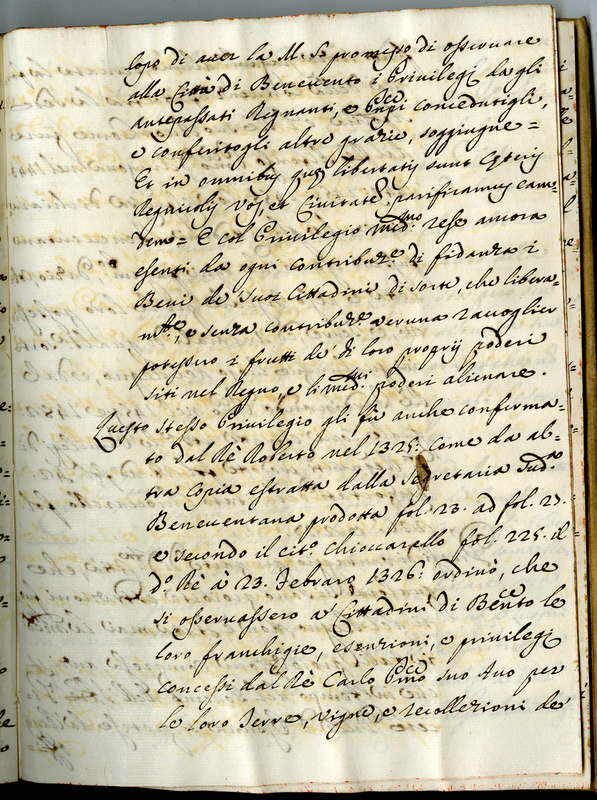 lope di aver la M. S. promesso di osservare
alla Città di Benevento i Privilegj dagli
antepassati Regnanti, e concedutigli,
e conferitogli altre grazie, soggiugne=
Et in omnibus libertatis sunt Ceteris
Regnicolis vos, et Civitate parificamus eam=
dem= E col Privilegio med.mo rese ancora
esenti da ogni contribuz.e di fidanza i
Beni de' suoi Cittadini di sorte, che libera=
m.te, e senza contribuz.e veruna raccoglier
potessero i frutti de' di loro proprij poderi
siti nel Regno, e li med.mi poderi alienare.
Questo stesso Privilegio gli fù anche conferma=
to dal Rè Roberto nel 1325: come da al=
tra Copia estratta dalla Segretaria Sud.a
Beneventana prodotta fol. 23. ad fol. 27.
e secondo il cit.o Chioccarello fol. 225. il
d.o Rè à 23. Febraro 1326: ordinò, che
si osservassero a' Cittadini di Ben.to le
loro franchigie, esenzioni, e privilegj
concessi dal Rè Carlo P.mo suo Avo per
le loro Terre, vigne, e recollezioni de'